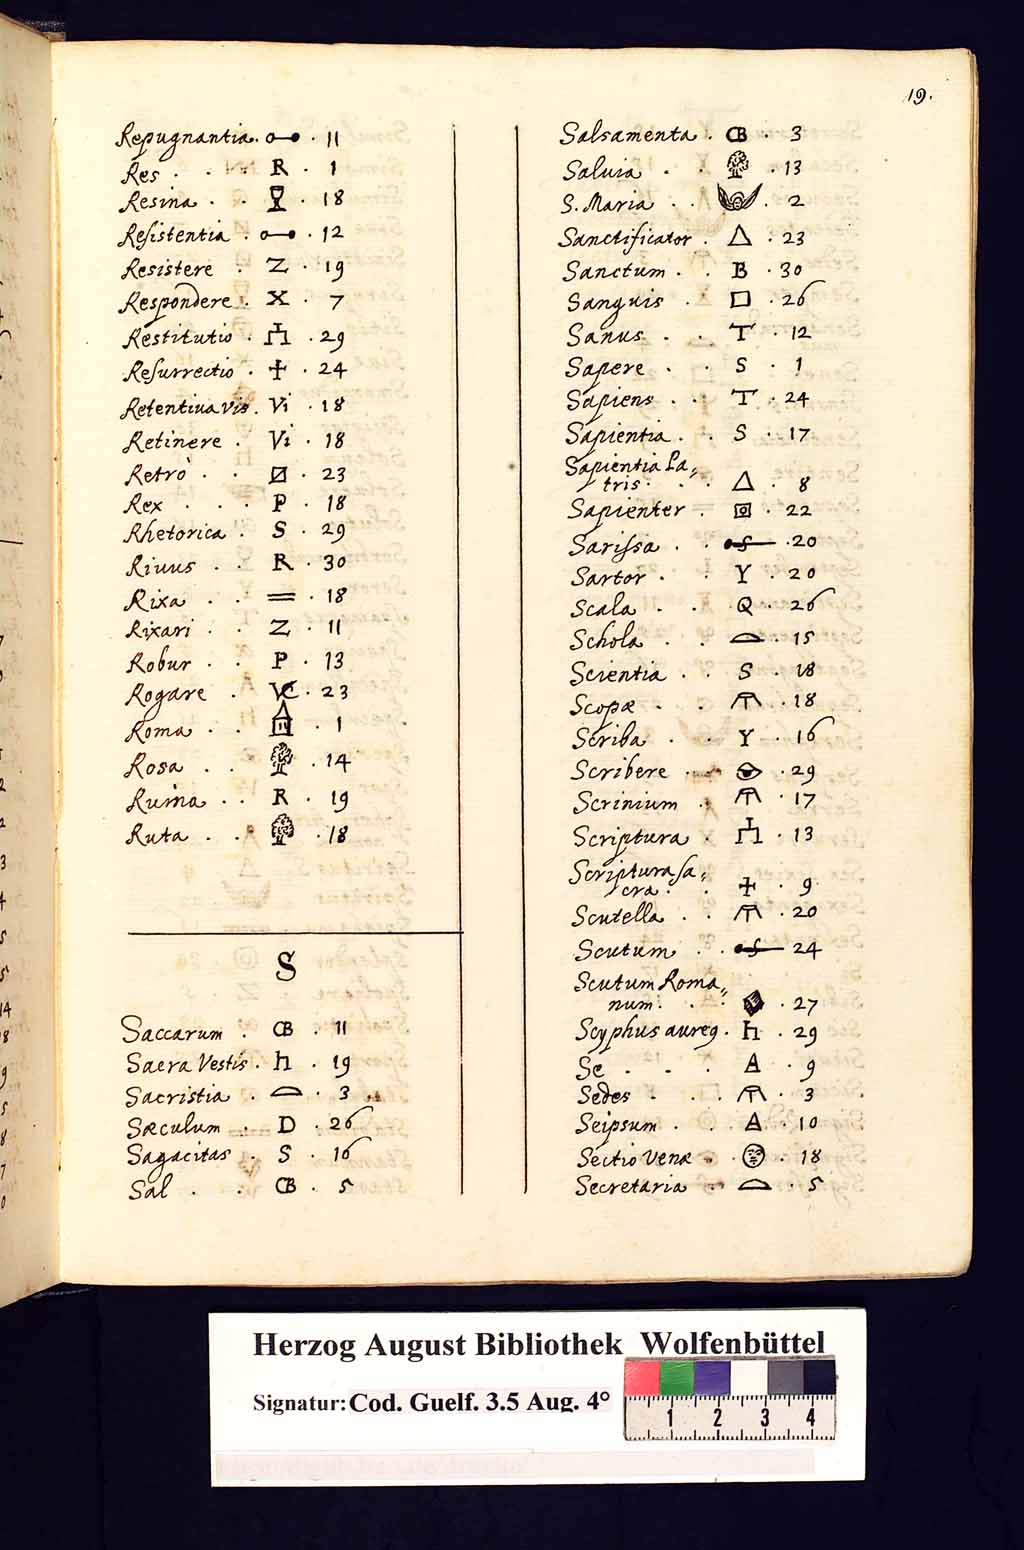 19.
Repugnantia. · 11
Res · · · R · 1
Resina · · · 18
Resistentia · · 12
Resistere · Z · 19
Respondere · X · 7
Restitutio · · 29
Resurrectio · + · 24
Retentiua vis. Vi · 18
Retinere · Vi · 18
Retrò · · · 23
Rex · · · P · 18
Rhetorica · S · 29
Riuus · · R · 30
Rixa · · = · 18
Rixari · · Z · 11
Robur · · P · 13
Rogare · · 23
Roma · · · 1
Rosa · · · 14
Ruina · · R · 19
Ruta · · · 18
S
Saccarum · CB · 11
Sacra Vestis · h · 19
Sacristia · · 3
Sæculum · D · 26
Sagacitas · S · 16
Sal · · CB · 5
Salsamenta · CB · 3
Saluia · · · 13
S. Maria · · · 2
Sanctificator · △ · 23
Sanctum · B · 30
Sanguis · □ · 26
Sanus · · T · 12
Sapere · · S · 1
Sapiens · · T · 24
Sapientia · · S · 17
Sapientia Pa„
tris · · · △ · 8
Sapienter · · 22
Sarissa · · · 20
Sartor · · Y · 20
Scala · · Q · 26
Schola · · · 15
Scientia · · S · 18
Scopæ · · · 18
Scriba · · Y · 16
Scribere · · 29
Scrinium · · 17
Scriptura · · 13
Scriptura sa„
cra · · + · 9
Scutella · · · 20
Scutum · · 24
Scutum Roma„
num · · · 27
Scyphus aureq · h · 29
Se · · · A · 9
Sedes · · · 3
Seipsum · · A · 10
Sectio Venæ · · 18
Secretaria · · 5
Herzog August Bibliothek Wolfenbüttel
Signatur: Cod. Guelf. 3.5 Aug. 4°
1 2 3 4